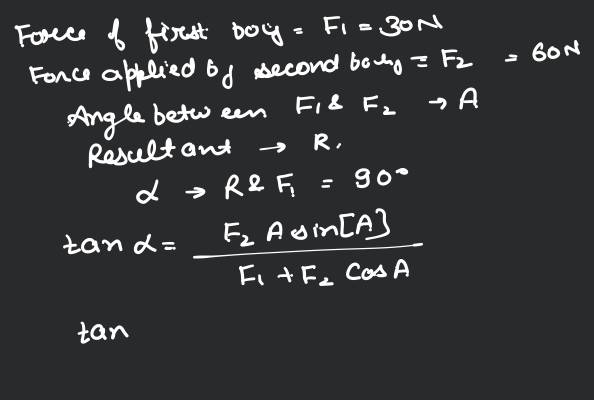 Force of first boy = F₁ = 30N
Force applied by second body = F₂ = 60N
Angle between F₁ & F₂ → A
Resultant → R.
α → R & F₁ = 90°
tan α = F₂ A sin[A] / F₁ + F₂ Cos A
tan